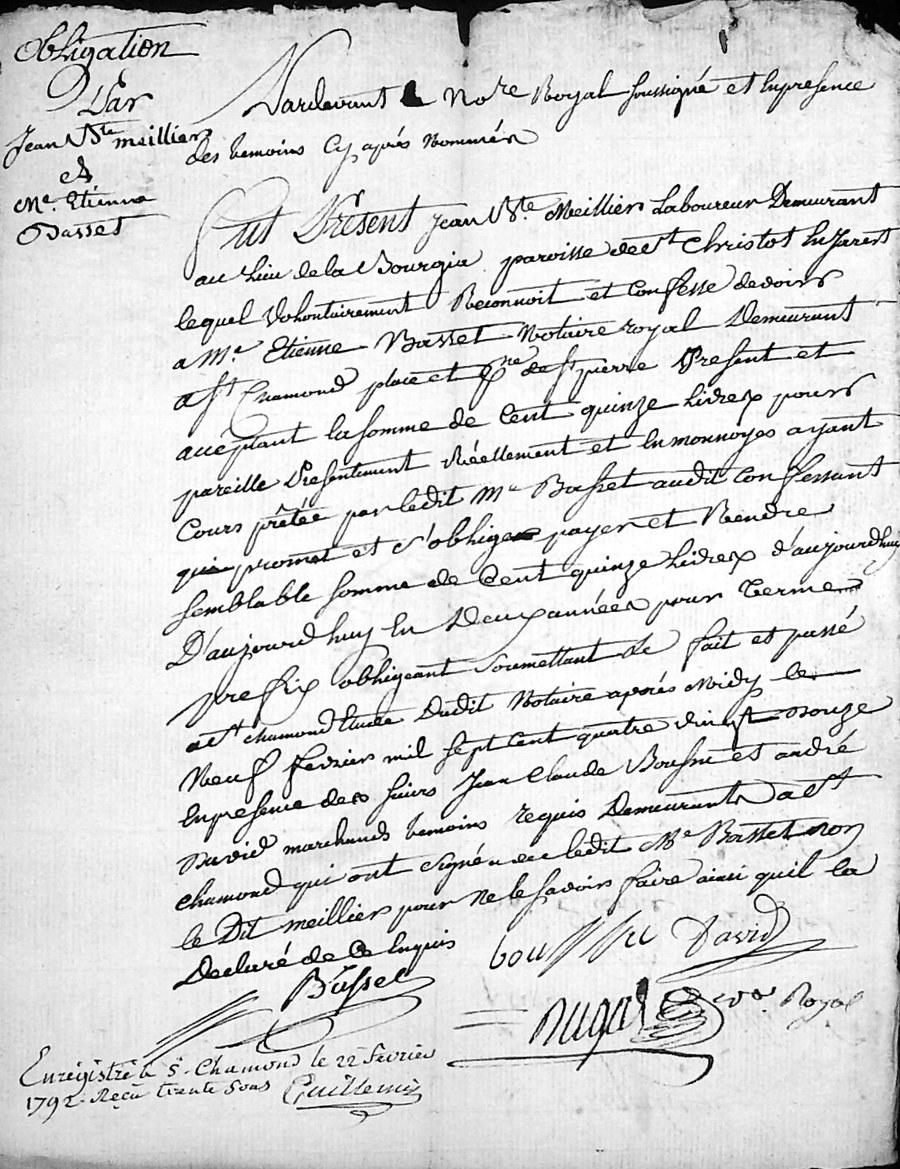 Obligation
Par
Jean Bte meillier
A
Me. Etienne
Basset
Pardevant Le Nore Royal soussigné et En presence
des temoins Cy après Nommés
Fut Présent Jean Bte. Meillier Laboureur Demeurant
au Lieu de la Bourgia paroisse de St Christot En Jarest
lequel Volontairement Reconnoit et Confesse devoir
a Me Etienne Basset Notaire royal Demeurant
a St Chamond place et psse de St pierre Présent et
acceptant la somme de Cent quinze Livres pour
pareille Presentement Réellement et En monnoyes ayant
Cours prêtée par ledit Me Basset audit Confessant
qui promet et s'oblige payer et Rendre
semblable somme de Cent quinze Livres d'aujourdhuy
D'aujourdhuy En Deux années pour Terme
prefix obligeant soumettant &c fait et passé
a St chamond Etude Dudit Notaire après Midy le
Neuf fevrier mil sept Cent quatre vingt Douze
En presence des sieurs Jean Claude Boussu et andré
David marchands temoins requis Demeurants a St
Chamond qui ont signé avec ledit Me Basset non
le Dit meillier pour ne le savoir faire ainsi quil la
Declaré de Ce Enquis
Basset
boussu David
Dugas Nore Royal
Enregistré à St. Chamond le 22 fevrier
1792. Reçu trente sous Guillemin